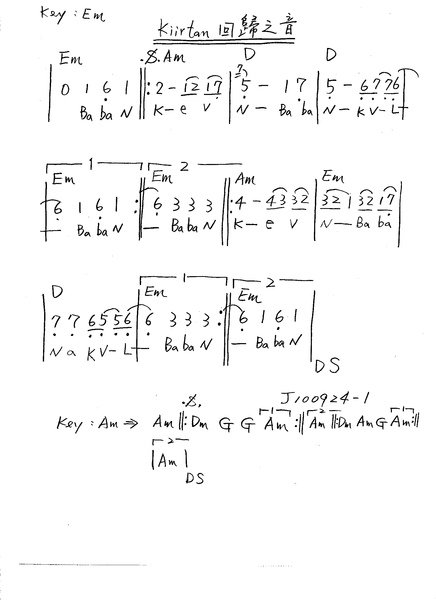 Key : Em
Kiirtan 回歸之音
Em 𝄋 Am D D
0 1 6 1 ‖: 2 - 12 17 | 5 - 1 7 | 5 - 67 76
Ba ba N K - e V N - Ba ba N - KV - L
1 2
Em Em Am Em
6 1 6 1 :‖ 6 3 3 3 ‖: 4 - 43 32 | 32 1 32 17 |
- Ba Ba N - Ba Ba N K - e V N - Ba ba
1 2
D Em Em
7 7 65 56 | 6 3 3 3 :‖ 6 1 6 1 |
N a KV - L - Ba Ba N - Ba Ba N
DS
𝄋 J100924-1
1 2 1
Key : Am ⇒ Am ‖: Dm G G Am :‖ Am ‖: Dm Am G Am :‖
2
| Am |
DS